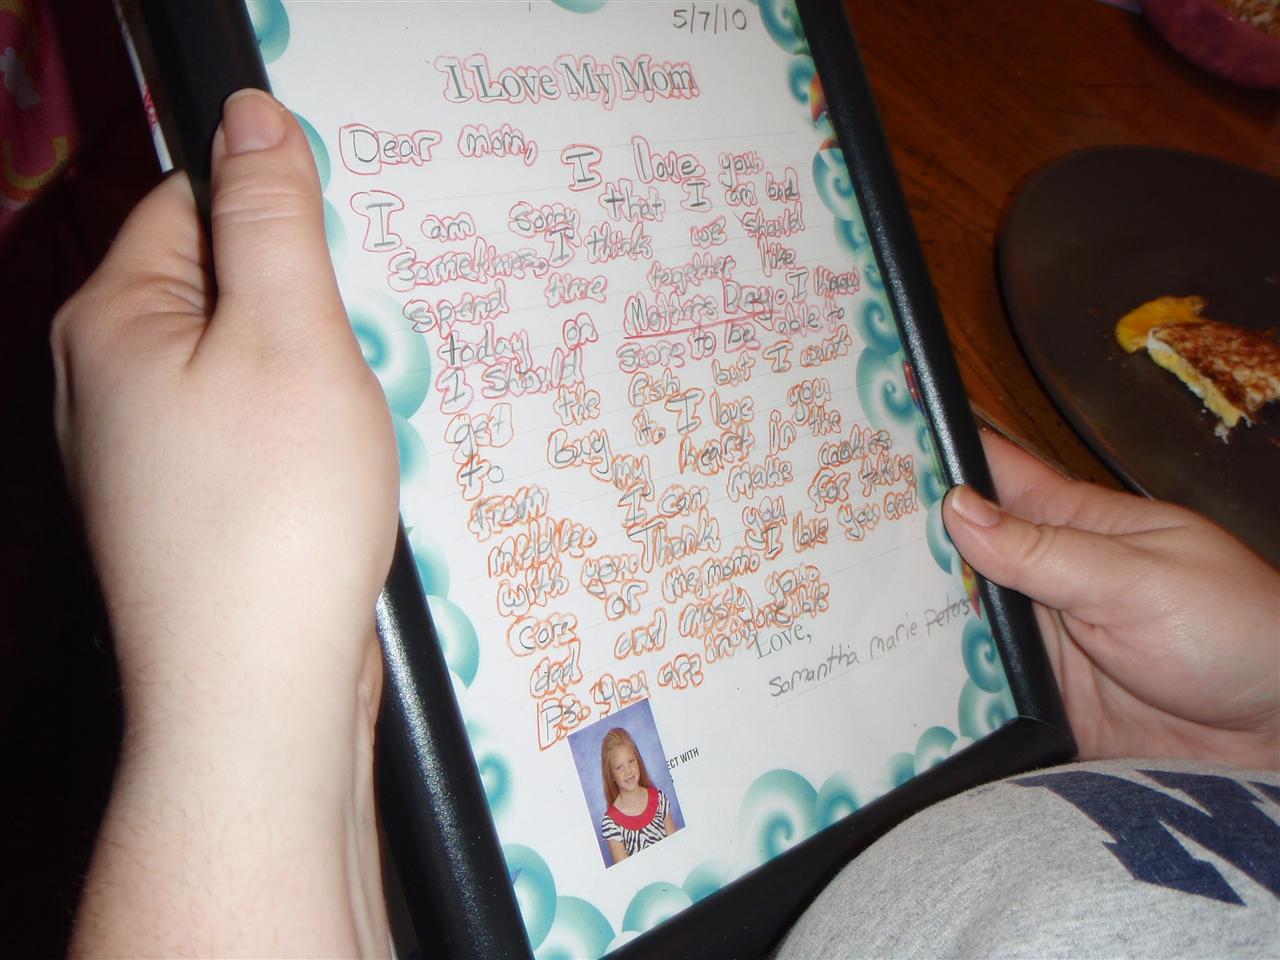 5/7/10
I Love My Mom
Dear mom, I love you.
I am sorry that I am bad
sometimes. I think we should
spend time together like
today on Mothers Day. I know
I should score to be able to
get the fish but I want
to buy it. I love you
from my heart in the
middle. I can make cookies
with you. Thank you for takin
care of me mom. I love you and
dad and mosty you.
Ps. you are
Love,
Samantha Marie Peters
ECT WITH